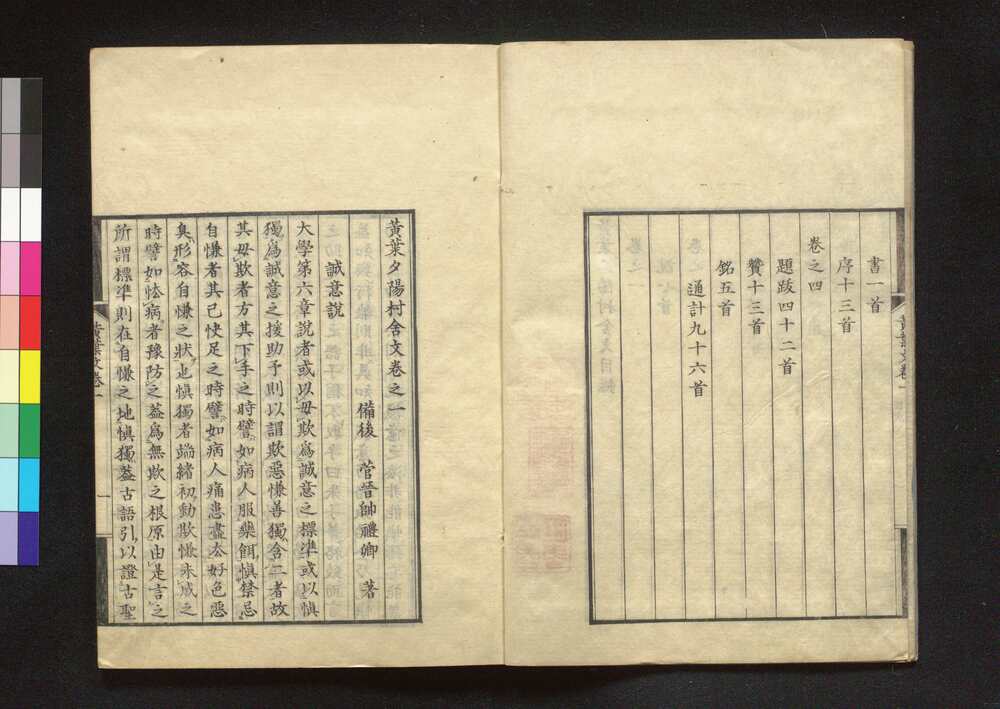 書一首
序十三首
卷之四
題跋四十二首
贊十三首
銘五首
通計九十六首
黃葉文卷
黃葉夕陽村舍文卷之一
備後 菅晉帥禮卿 著
誠意說
大學第六章說者或以毋欺為誠意之標準或以慎
獨為誠意之援助予則以謂欺惡慊善獨含二者故
其毋欺者方其下手之時譬如病人服藥餌慎禁忌
自慊者其已快足之時譬如病人痛患盡去好色惡
臭形容自慊之狀也慎獨者端緒初動欺慊未成之
時譬如怯病者豫防之蓋為無欺之根原由是言之
所謂標準則在自慊之地慎獨蓋古語引以證古聖
黃葉文卷一
一